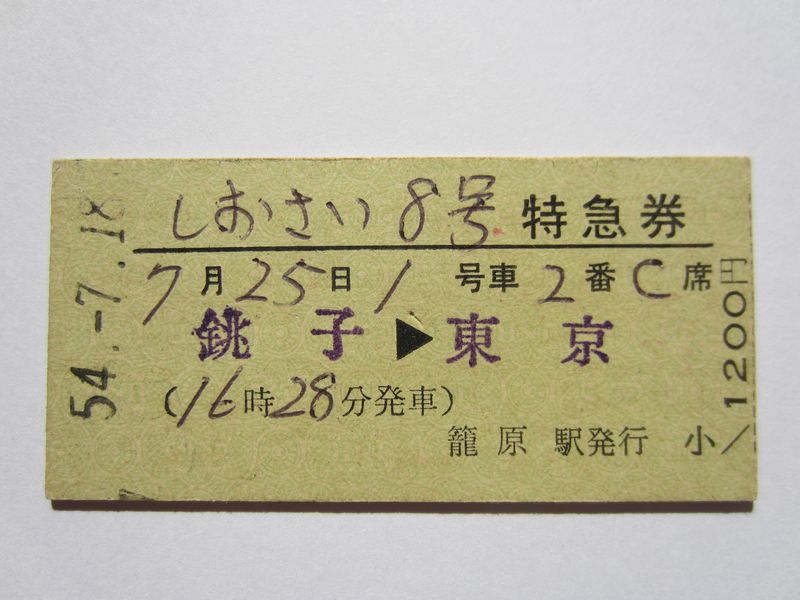 54.-7.18
しおさい8号 特急券
7月25日1号車2番C席
銚子▶東京
(16時28分発車)
籠原 駅発行 小/1200円